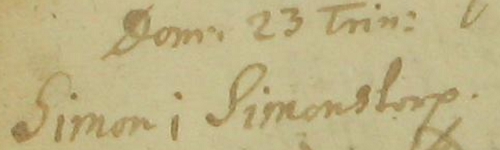 Dom. 23 Trin:
Simon i Simonstorp.